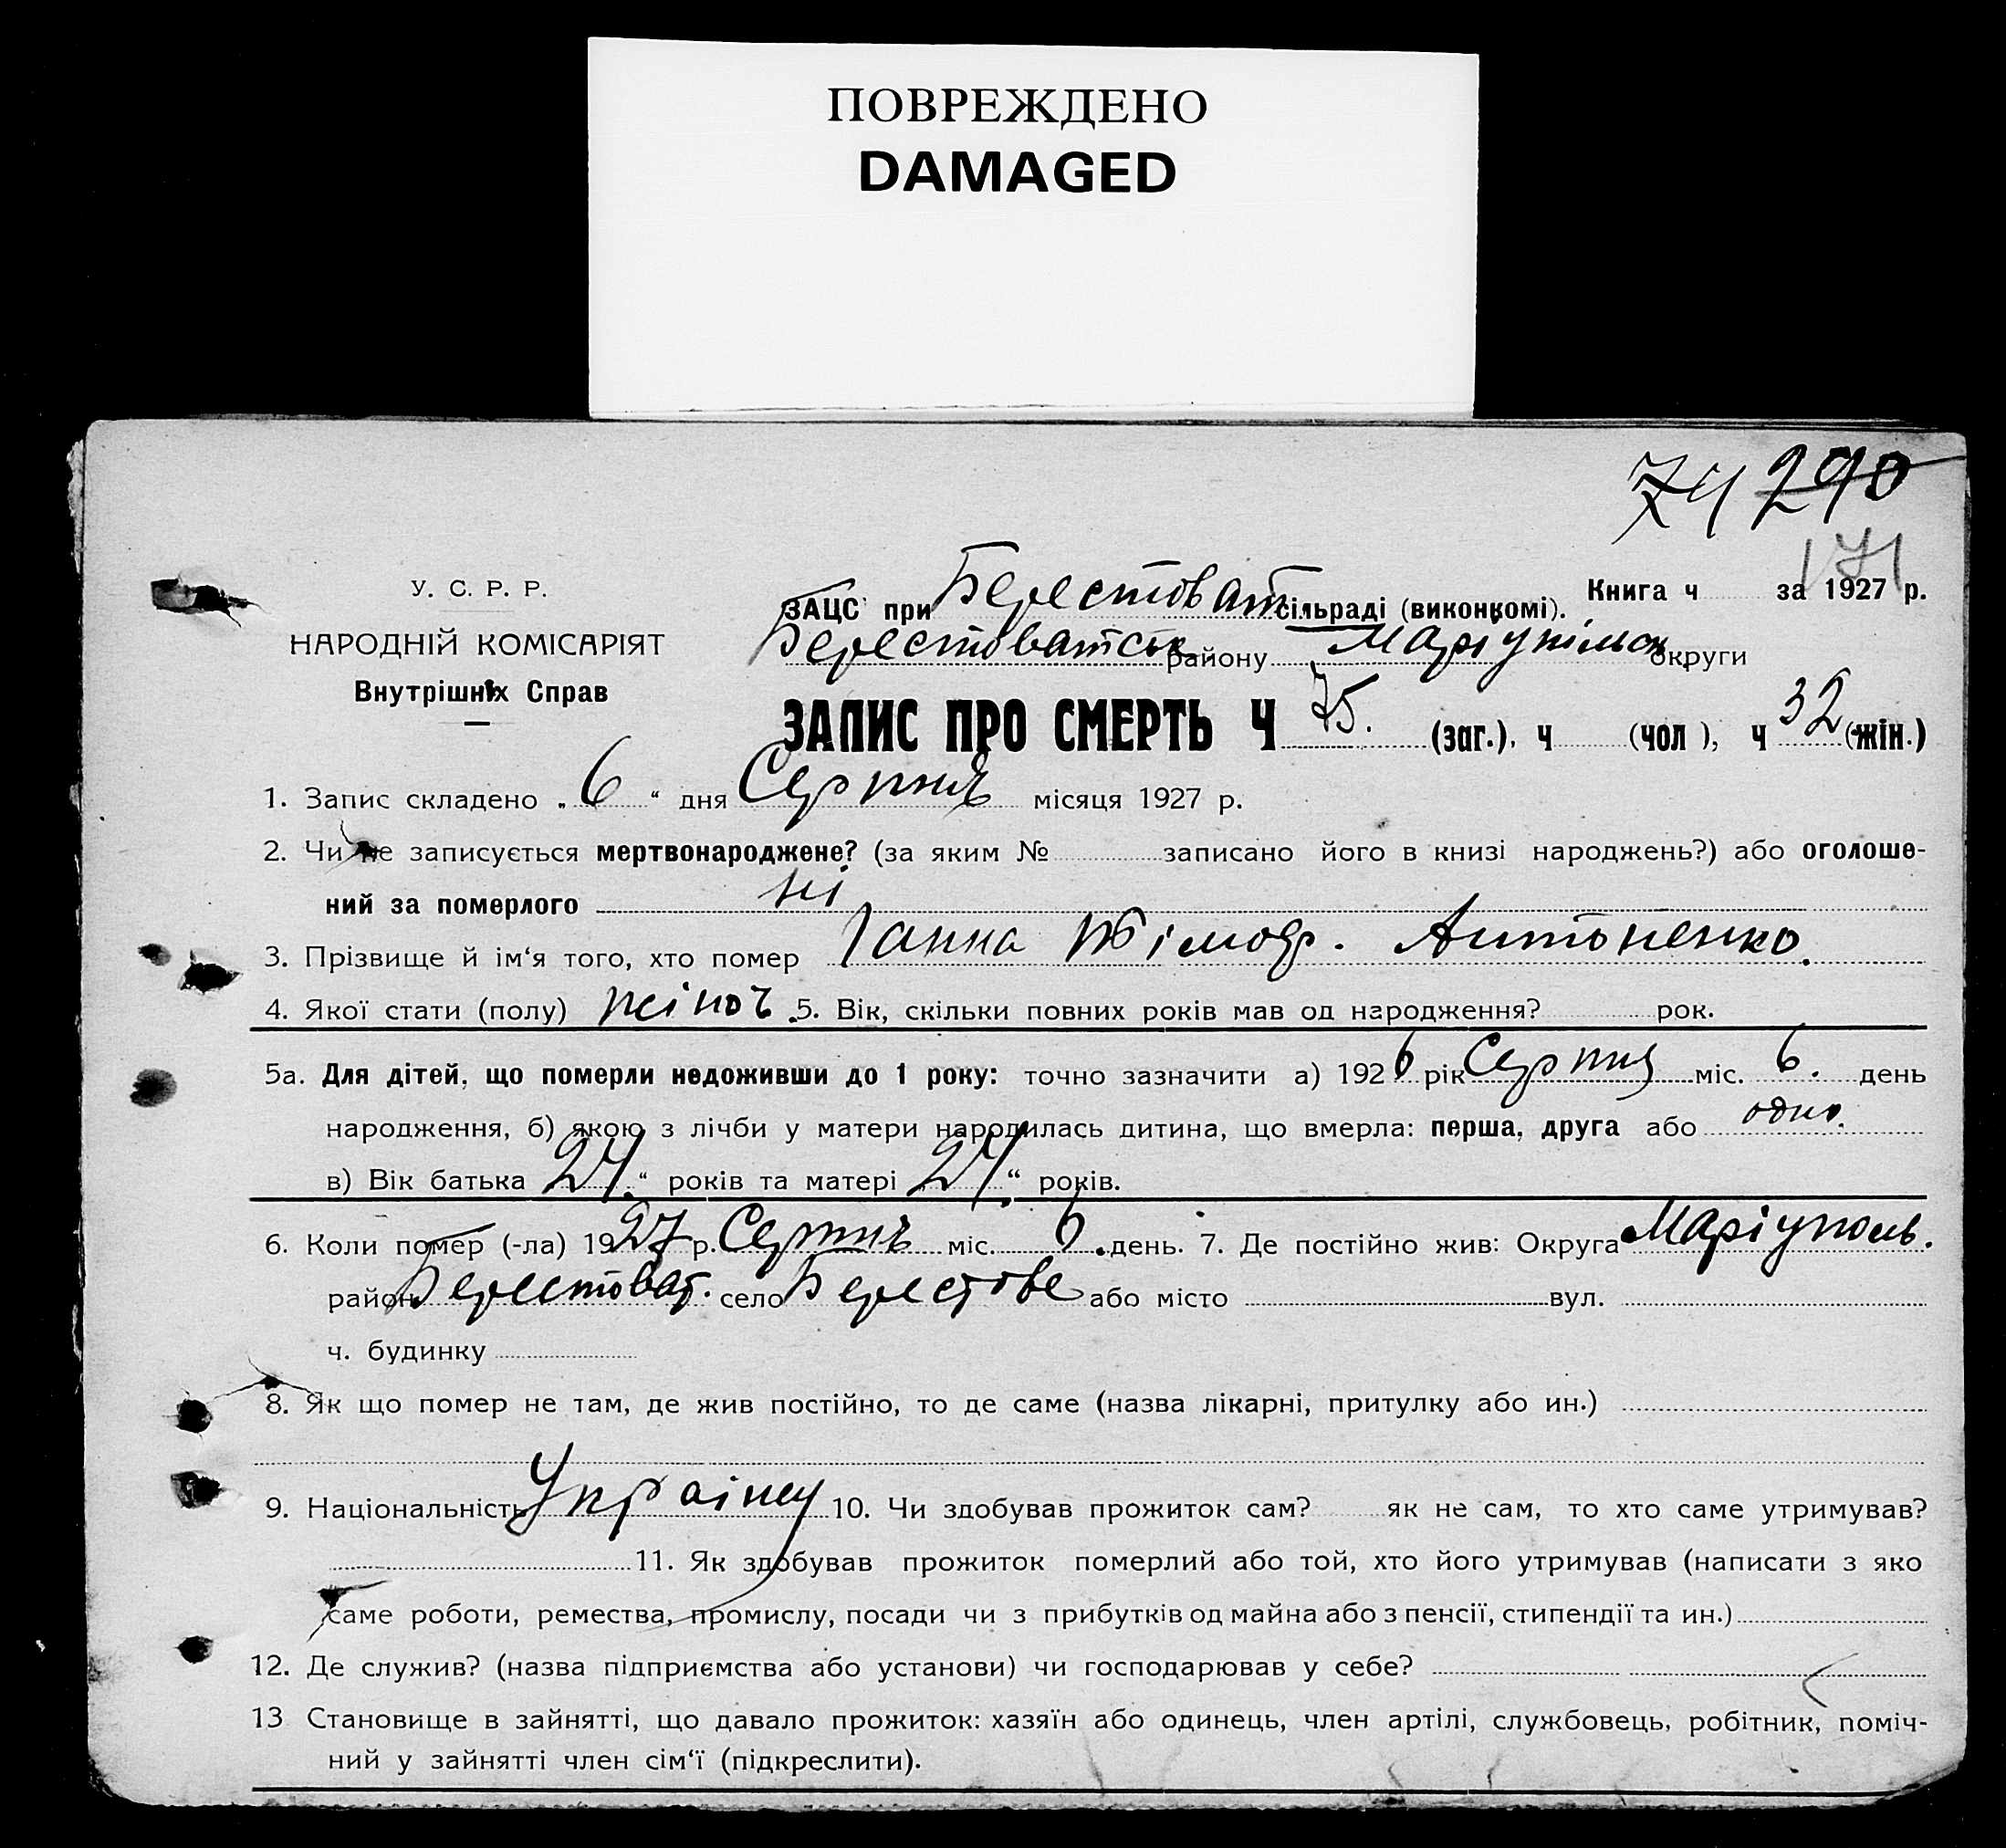 ПОВРЕЖДЕНО
DAMAGED
74 290
171
У. С. Р. Р.
НАРОДНІЙ КОМІСАРІЯТ
Внутрішніх Справ
Книга ч за 1927 р.
ЗАЦС при Берестоват. сільраді (виконкомі).
Берестоватськ району Маріупільськ округи
ЗАПИС ПРО СМЕРТЬ Ч 75. (заг.), ч (чол), ч 32 (жін.)
1. Запис складено „ 6 “ дня Серпня місяця 1927 р.
2. Чи не записується мертвонароджене? (за яким № записано його в книзі народжень?) або оголоше-
ний за померлого ні
3. Прізвище й ім‘я того, хто помер Ганна Тімоф. Антоненко.
4. Якої стати (полу) жіноч. 5. Вік, скільки повних років мав од народження? рок.
5а. Для дітей, що померли недоживши до 1 року: точно зазначити а) 1926 рік Серпня міс. 6. день
народження, б) якою з лічби у матери народилась дитина, що вмерла: перша, друга або одно.
в) Вік батька 24 “ років та матері 24 “ років.
6. Коли помер (-ла) 1927 р. Серпня міс. 6 день. 7. Де постійно жив: Округа Маріуполь.
район Берестоват. село Берестове або місто вул.
ч. будинку
8. Як що помер не там, де жив постійно, то де саме (назва лікарні, притулку або ин.)
9. Національність Україну 10. Чи здобував прожиток сам? як не сам, то хто саме утримував?
11. Як здобував прожиток померлий або той, хто його утримував (написати з яко
саме роботи, ремества, промислу, посади чи з прибутків од майна або з пенсії, стипендії та ин.)
12. Де служив? (назва підприємства або установи) чи господарював у себе?
13 Становище в зайнятті, що давало прожиток: хазяїн або одинець, член артілі, службовець, робітник, поміч-
ний у зайнятті член сім‘ї (підкреслити).